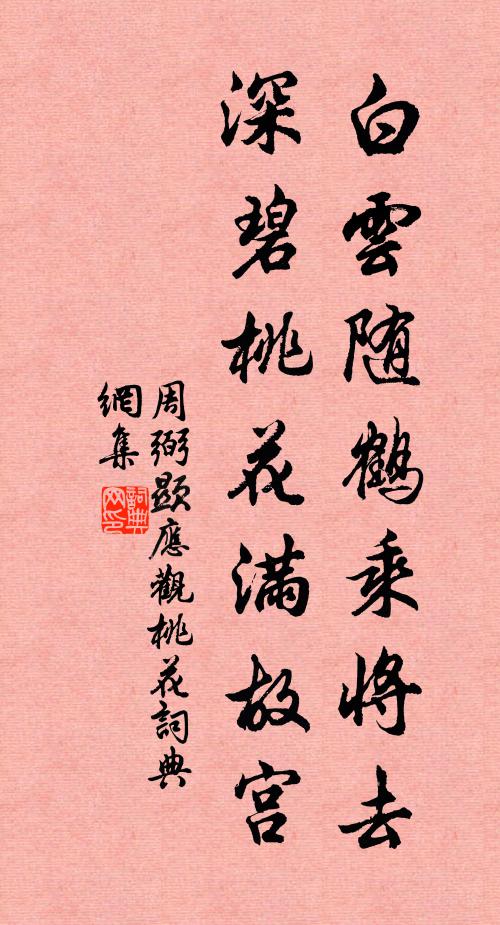 白雲随鶴乘將去
深碧桃花满故宫
周弼題應觀桃花詞典
網集
詞典
网印